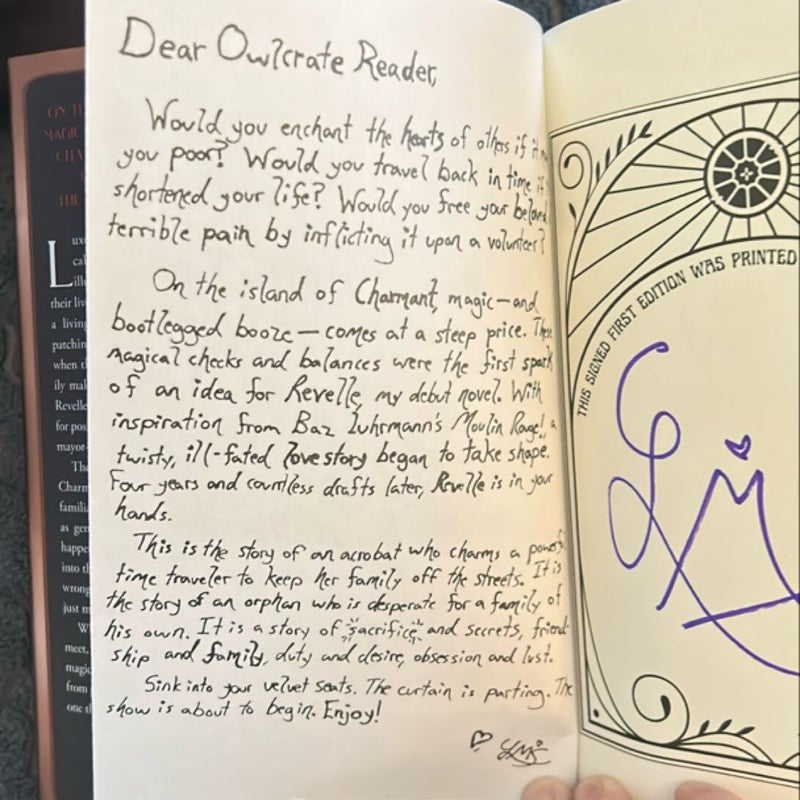 Dear Owlcrate Reader,
Would you enchant the hearts of others if it
you poor? Would you travel back in time if
shortened your life? Would you free your beloved
terrible pain by inflicting it upon a volunteer?
On the island of Charmant, magic—and
bootlegged booze—comes at a steep price. These
magical checks and balances were the first spark
of an idea for Revelle, my debut novel. With
inspiration from Baz Luhrmann's Moulin Rouge!, a
twisty, ill-fated love story began to take shape.
Four years and countless drafts later, Revelle is in your
hands.
This is the story of an acrobat who charms a powerful
time traveler to keep her family off the streets. It is
the story of an orphan who is desperate for a family of
his own. It is a story of sacrifice and secrets, friend-
ship and family, duty and desire, obsession and lust.
Sink into your velvet seats. The curtain is parting. The
show is about to begin. Enjoy!
LMS
THIS SIGNED FIRST EDITION WAS PRINTED
ON TH
MAGIC
CHA
THE
Lux
cal
ill
their liv
a living
patchin
when t
ily mal
Revelle
for pos
mayor-
The
Charm
famili
as gen
happe
into th
wrong
just m
W
meet,
magic
from
one t